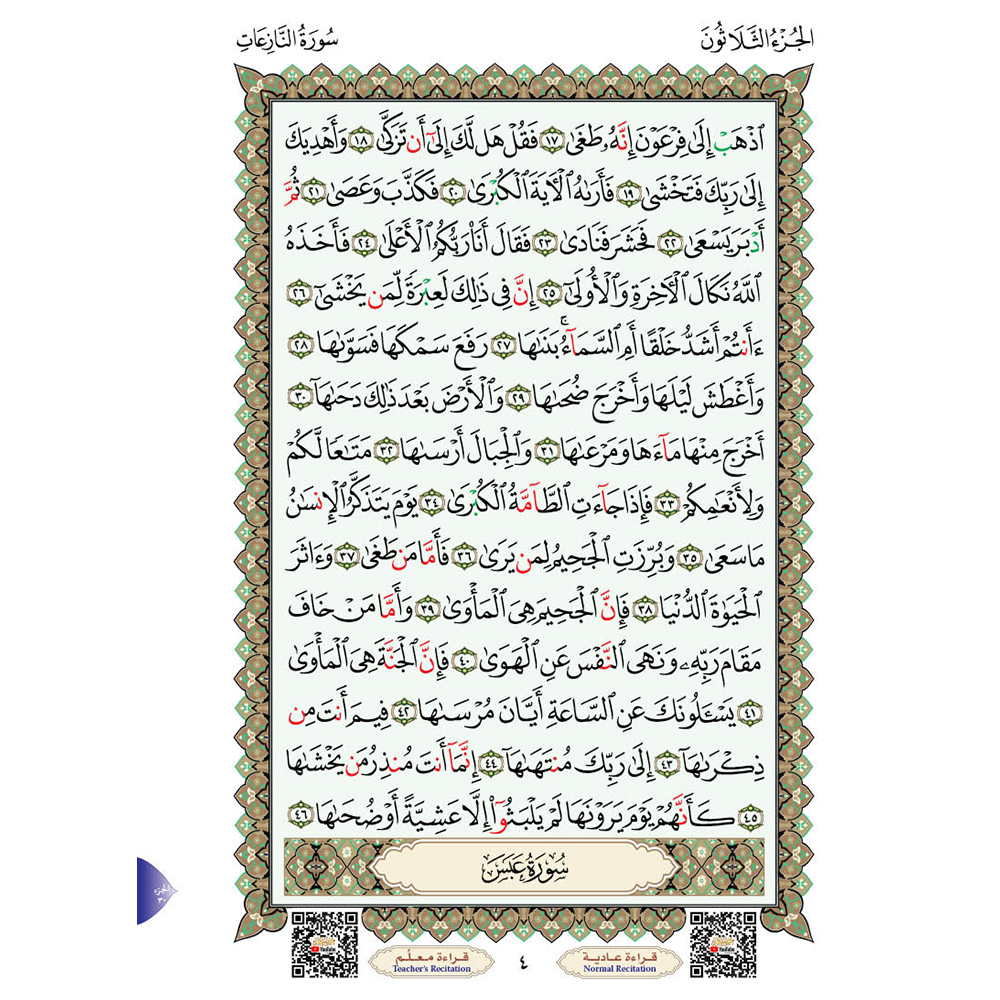 الجُزءُ الثَّلَاثُونَ
سُورَةُ النَّازِعَاتِ
ٱذۡهَبۡ إِلَىٰ فِرۡعَوۡنَ إِنَّهُۥ طَغَىٰ ١٧ فَقُلۡ هَل لَّكَ إِلَىٰٓ أَن تَزَكَّىٰ ١٨ وَأَهۡدِيَكَ
إِلَىٰ رَبِّكَ فَتَخۡشَىٰ ١٩ فَأَرَىٰهُ ٱلۡأٓيَةَ ٱلۡكُبۡرَىٰ ٢٠ فَكَذَّبَ وَعَصَىٰ ٢١ ثُمَّ
أَدۡبَرَ يَسۡعَىٰ ٢٢ فَحَشَرَ فَنَادَىٰ ٢٣ فَقَالَ أَنَا۠ رَبُّكُمُ ٱلۡأَعۡلَىٰ ٢٤ فَأَخَذَهُ
ٱللَّهُ نَكَالَ ٱلۡأٓخِرَةِ وَٱلۡأُولَىٰٓ ٢٥ إِنَّ فِي ذَٰلِكَ لَعِبۡرَةٗ لِّمَن يَخۡشَىٰٓ ٢٦
ءَأَنتُمۡ أَشَدُّ خَلۡقًا أَمِ ٱلسَّمَآءُۚ بَنَىٰهَا ٢٧ رَفَعَ سَمۡكَهَا فَسَوَّىٰهَا ٢٨
وَأَغۡطَشَ لَيۡلَهَا وَأَخۡرَجَ ضُحَىٰهَا ٢٩ وَٱلۡأَرۡضَ بَعۡدَ ذَٰلِكَ دَحَىٰهَآ ٣٠
أَخۡرَجَ مِنۡهَا مَآءَهَا وَمَرۡعَىٰهَا ٣١ وَٱلۡجِبَالَ أَرۡسَىٰهَا ٣٢ مَتَٰعٗا لَّكُمۡ
وَلِأَنۡعَٰمِكُمۡ ٣٣ فَإِذَا جَآءَتِ ٱلطَّآمَّةُ ٱلۡكُبۡرَىٰ ٣٤ يَوۡمَ يَتَذَكَّرُ ٱلۡإِنسَٰنُ
مَا سَعَىٰ ٣٥ وَبُرِّزَتِ ٱلۡجَحِيمُ لِمَن يَرَىٰ ٣٦ فَأَمَّا مَن طَغَىٰ ٣٧ وَءَاثَرَ
ٱلۡحَيَوٰةَ ٱلدُّنۡيَا ٣٨ فَإِنَّ ٱلۡجَحِيمَ هِيَ ٱلۡمَأۡوَىٰ ٣٩ وَأَمَّا مَنۡ خَافَ
مَقَامَ رَبِّهِۦ وَنَهَى ٱلنَّفۡسَ عَنِ ٱلۡهَوَىٰ ٤٠ فَإِنَّ ٱلۡجَنَّةَ هِيَ ٱلۡمَأۡوَىٰ
٤١ يَسۡـَٔلُونَكَ عَنِ ٱلسَّاعَةِ أَيَّانَ مُرۡسَىٰهَا ٤٢ فِيمَ أَنتَ مِن
ذِكۡرَىٰهَآ ٤٣ إِلَىٰ رَبِّكَ مُنتَهَىٰهَآ ٤٤ إِنَّمَآ أَنتَ مُنذِرُ مَن يَخۡشَىٰهَا
٤٥ كَأَنَّهُمۡ يَوۡمَ يَرَوۡنَهَا لَمۡ يَلۡبَثُوٓاْ إِلَّا عَشِيَّةً أَوۡ ضُحَىٰهَا ٤٦
سُورَةُ عَبَسَ
الجزء
٣٠
قراءة عادية
Normal Recitation
٤
قراءة معلّم
Teacher's Recitation
YouTube
YouTube